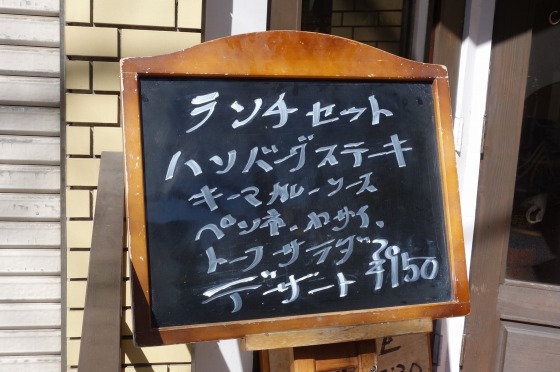 ランチセット
ハンバーグステーキ
キーマカレーソース
ペンネ.ヤサイ.
トーフサラダ
デザート ¥950